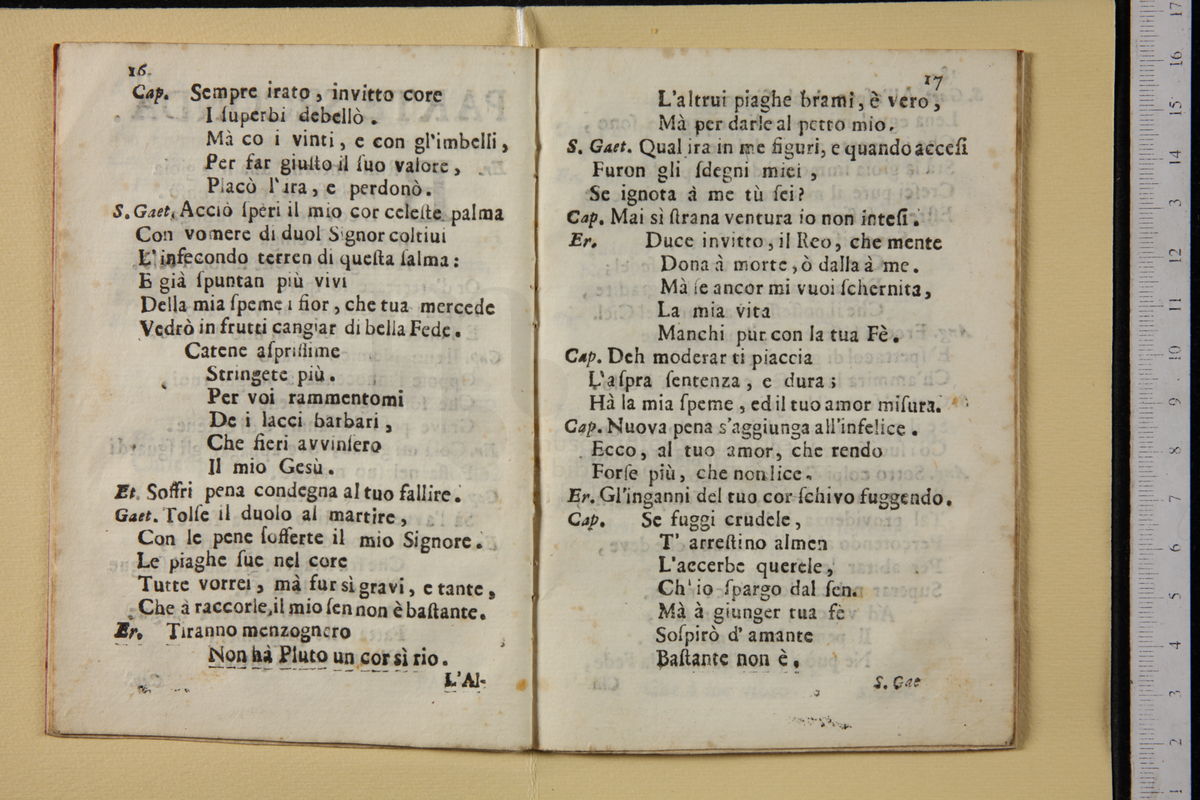 16.
Cap. Sempre irato, invitto core
I ſuperbi debellò.
Mà co i vinti, e con gl'imbelli,
Per far giuſto il ſuo valore,
Placò l'ira, e perdonò.
S. Gaet. Acciò ſperi il mio cor celeſte palma
Con vomere di duol Signor coltiui
L'infecondo terren di queſta ſalma:
E già ſpuntan più vivi
Della mia ſpeme i fior, che tua mercede
Vedrò in frutti cangiar di bella Fede.
Catene aſpriſſime
Stringete più.
Per voi rammentomi
De i lacci barbari,
Che fieri avvinſero
Il mio Gesù.
Et. Soffri pena condegna al tuo fallire.
Gaet. Tolſe il duolo al martire,
Con le pene ſofferte il mio Signore.
Le piaghe ſue nel core
Tutte vorrei, mà fur sì gravi, e tante,
Che à raccorle, il mio ſen non è baſtante.
Er. Tiranno menzognero
Non hà Pluto un cor sì rio.
L'Al-
17
L'altrui piaghe brami, è vero,
Mà per darle al petto mio.
S. Gaet. Qual ira in me figuri, e quando acceſi
Furon gli ſdegni miei,
Se ignota à me tù ſei?
Cap. Mai sì ſtrana ventura io non inteſi.
Er. Duce invitto, il Reo, che mente
Dona à morte, ò dalla à me.
Mà ſe ancor mi vuoi ſchernita,
La mia vita
Manchi pur con la tua Fè.
Cap. Deh moderar ti piaccia
L'aſpra ſentenza, e dura;
Hà la mia ſpeme, ed il tuo amor miſura.
Cap. Nuova pena s'aggiunga all'infelice.
Ecco, al tuo amor, che rendo
Forſe più, che non lice.
Er. Gl'inganni del tuo cor ſchivo fuggendo.
Cap. Se fuggi crudele,
T' arreſtino almen
L'accerbe querele,
Ch'io ſpargo dal ſen.
Mà à giunger tua fè
Soſpirò d'amante
Baſtante non è.
S. Gae
17
16
15
14
13
12
11
10
9
8
7
6
5
4
3
2
1